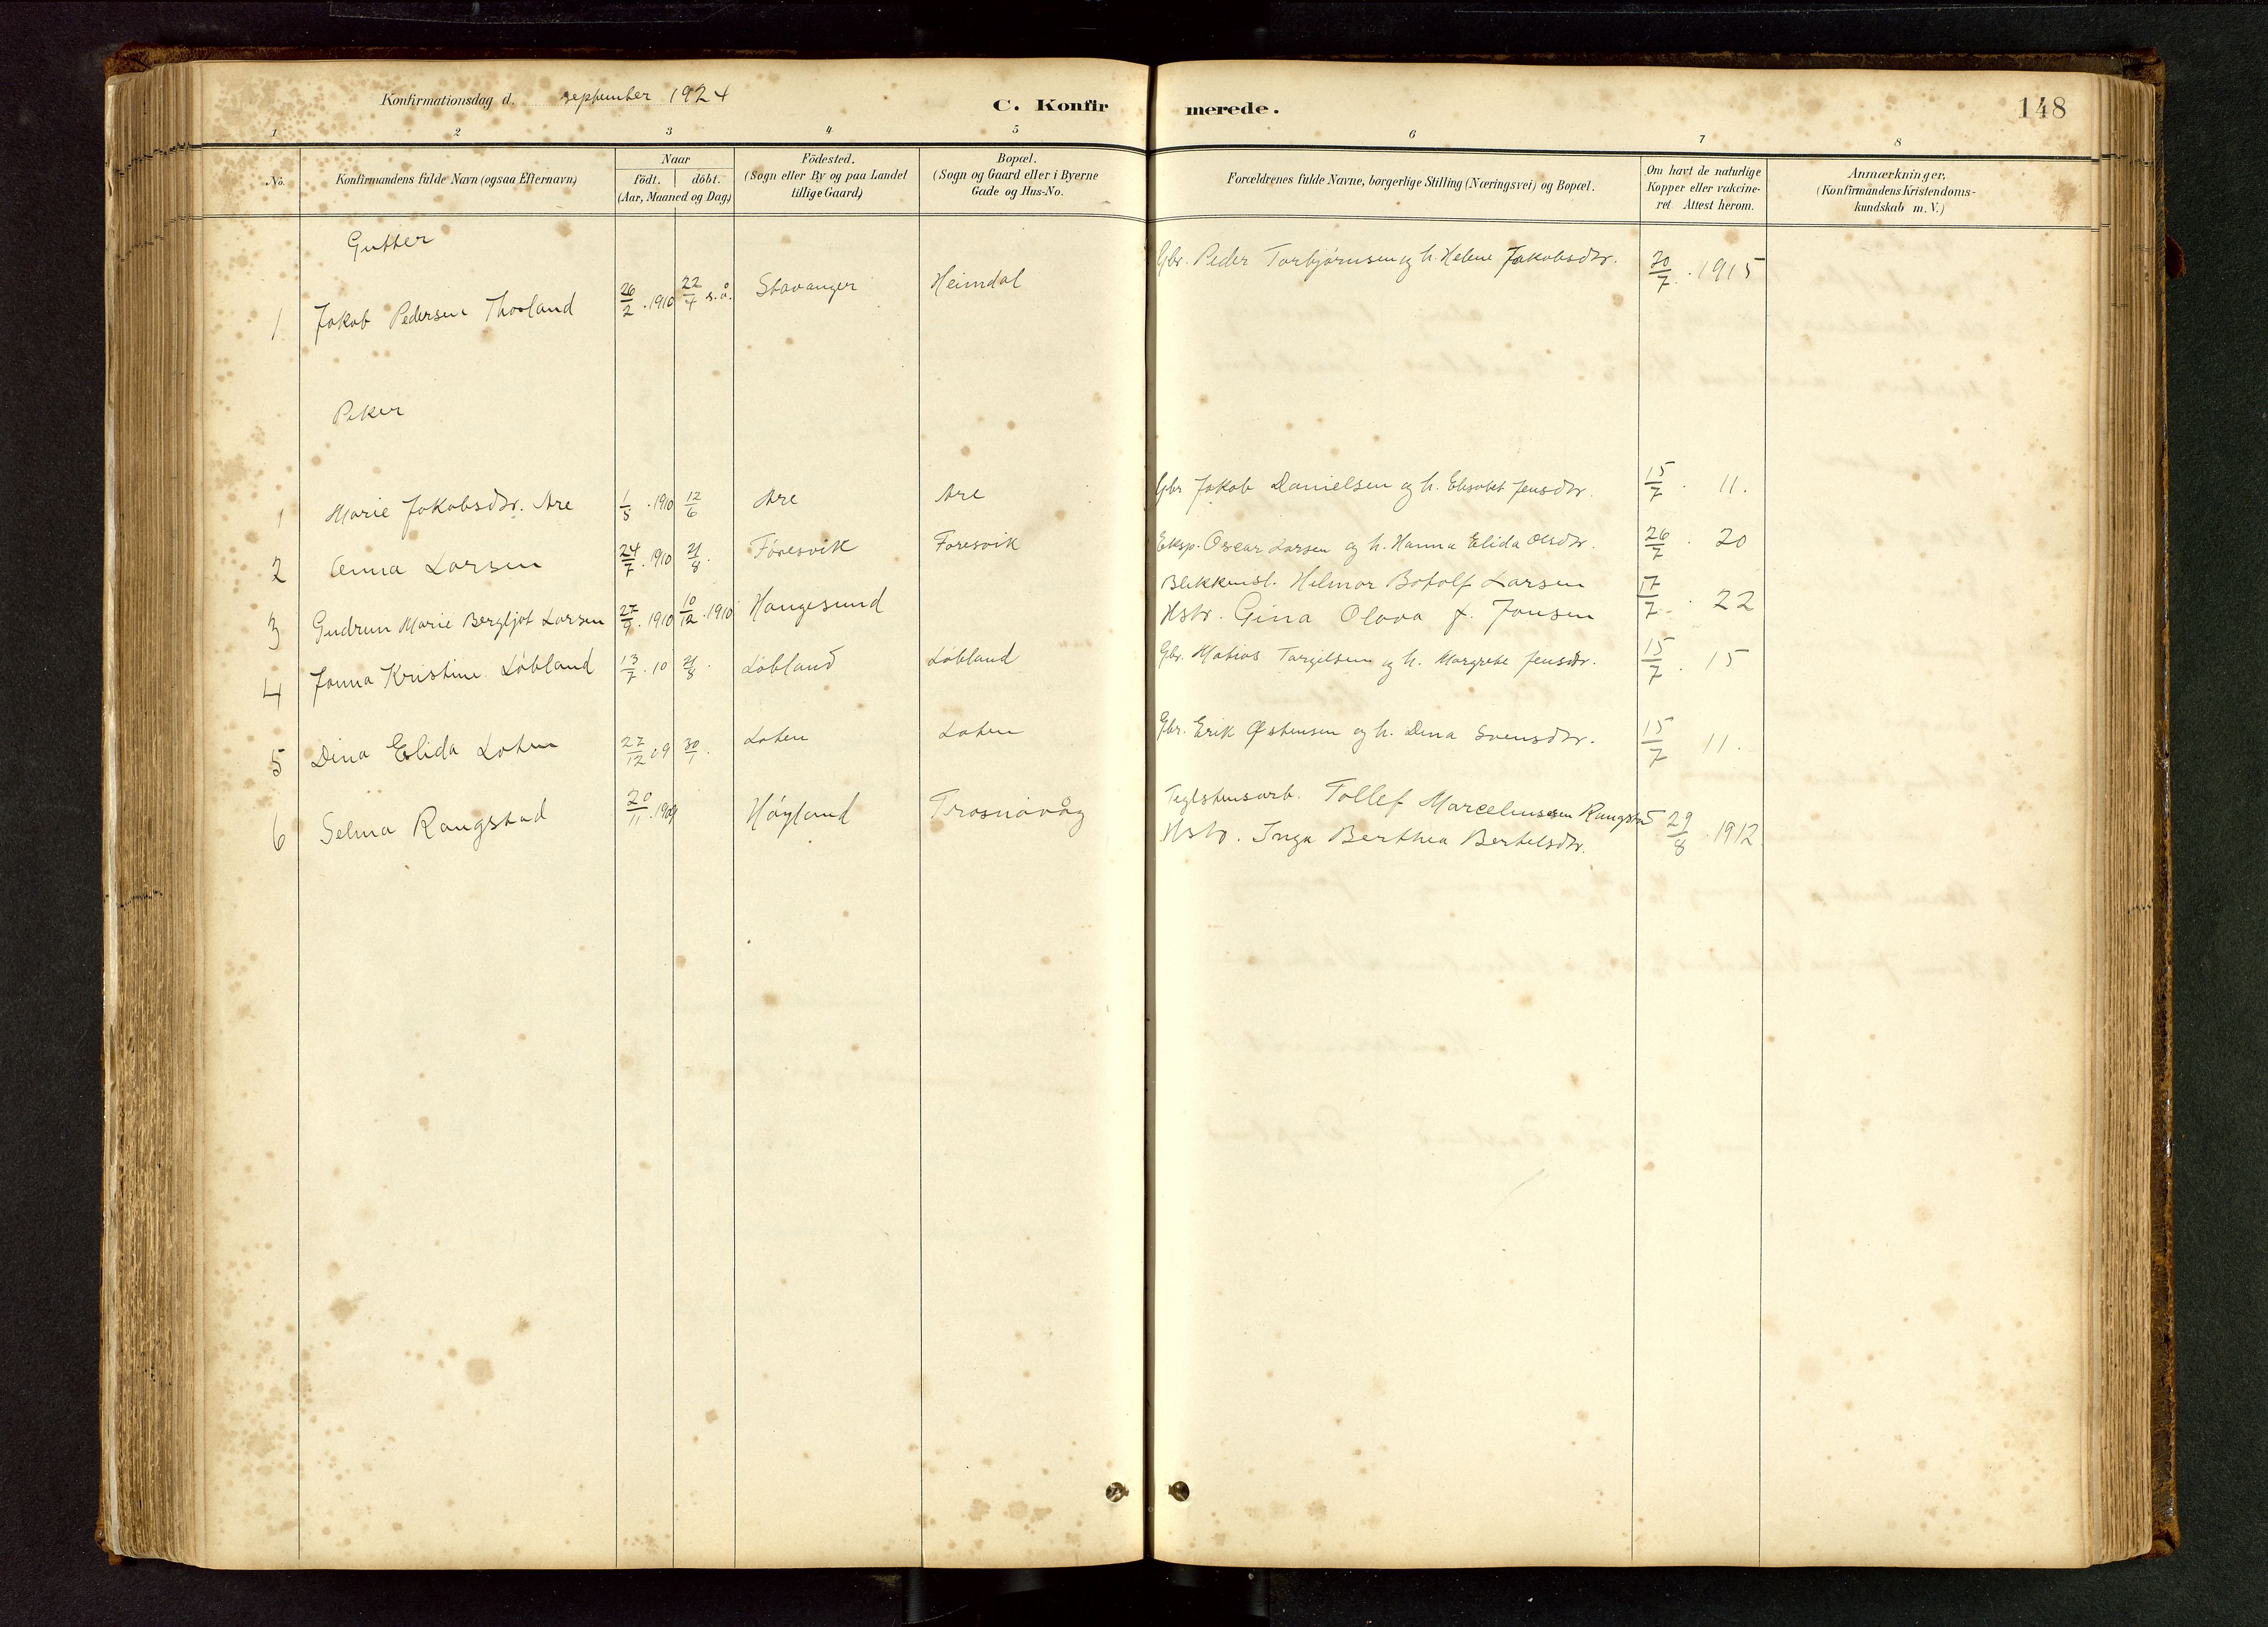 Konfirmationsdag d. september 1924
C. Konfirmerede.
148
1 2 3 4 5 6 7 8
No.
Konfirmandens fulde Navn (ogsaa Efternavn)
Naar
födt. döbt.
(Aar, Maaned og Dag.)
Födested.
(Sogn eller By og paa Landet
tillige Gaard)
Bopæl.
(Sogn og Gaard eller i Byerne
Gade og Hus-No.
Forældrenes fulde Navne, borgerlige Stilling (Næringsvei) og Bopæl.
Om havt de naturlige
Kopper eller vakcine-
ret. Attest herom.
Anmærkninger.
(Konfirmandens Kristendoms-
kundskab m. V.)
Gutter
1 Jakob Pedersen Thorland 26/2 . 1910 22/4 s.å. Stavanger Heimdal Gbr. Peder Torbjørnsen og h. Helene Jakobsdtr. 20/7 . 1915
Piker
1 Marie Jakobsdtr. Are 1/5 . 1910 12/6 Are Are Gbr Jakob Danielsen og h. Elisabet Jensdtr. 15/7 . 11.
2 Anna Larsen 24/7 . 1910 21/8 . Føresvik Føresvik Eksp. Oscar Larsen og h. Hanna Elida Olsdtr. 26/7 . 20
3 Gudrun Marie Bergljot Larsen 27/9 . 1910 10/12 . 1910 Haugesund Blikkensl. Helmar Botolf Larsen
Hstr. Gina Olava f. Jonsen 17/7 . 22
4 Janna Kristine Løbland 13/7 . 10 21/8 . Løbland Løbland Gbr. Matias Targelsen og h. Margrete Jensdtr. 15/7 . 15
5 Dina Elida Loten 27/12 09 30/1 . Loten Loten Gbr. Erik Østensen og h. Dina Svensdtr. 15/7 11.
6 Selma Rangstad 20/11 . 1909 Høyland Trosnavåg Teglstensarb. Tollef Marceliussen Rangstad
Hstr. Inga Berthea Bertelsdtr. 29/8 . 1912